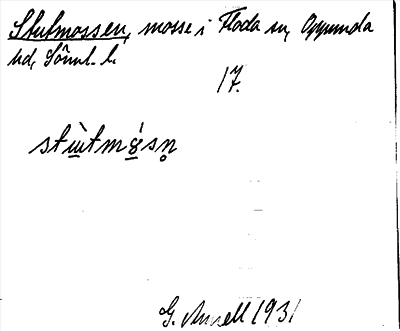 Stutmossen, mosse i Floda sn, Oppunda
hd, Söml. l.
17.
stù̲tmó̲sn̥
G. Ansell 1931